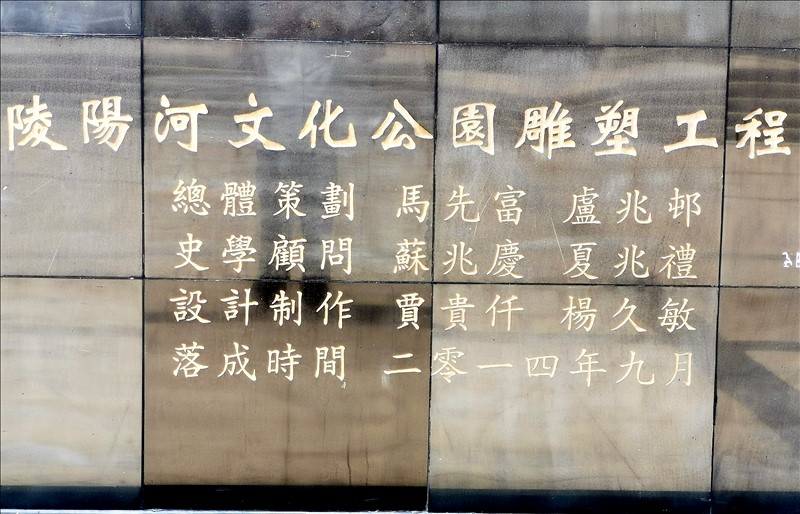 陵陽河文化公園雕塑工程
總體策劃 馬先富 盧兆邨
史學顧問 蘇兆慶 夏兆禮
設計制作 賈貴仟 楊久敏
落成時間 二零一四年九月